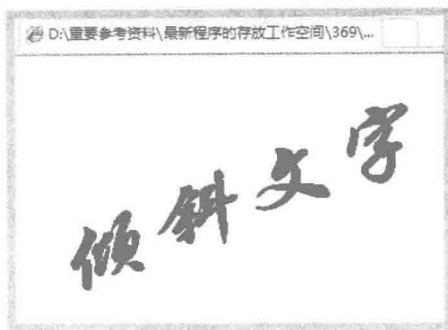 D:\重要参考资料\最新程序的存放工作空间\369\...
倾斜文字